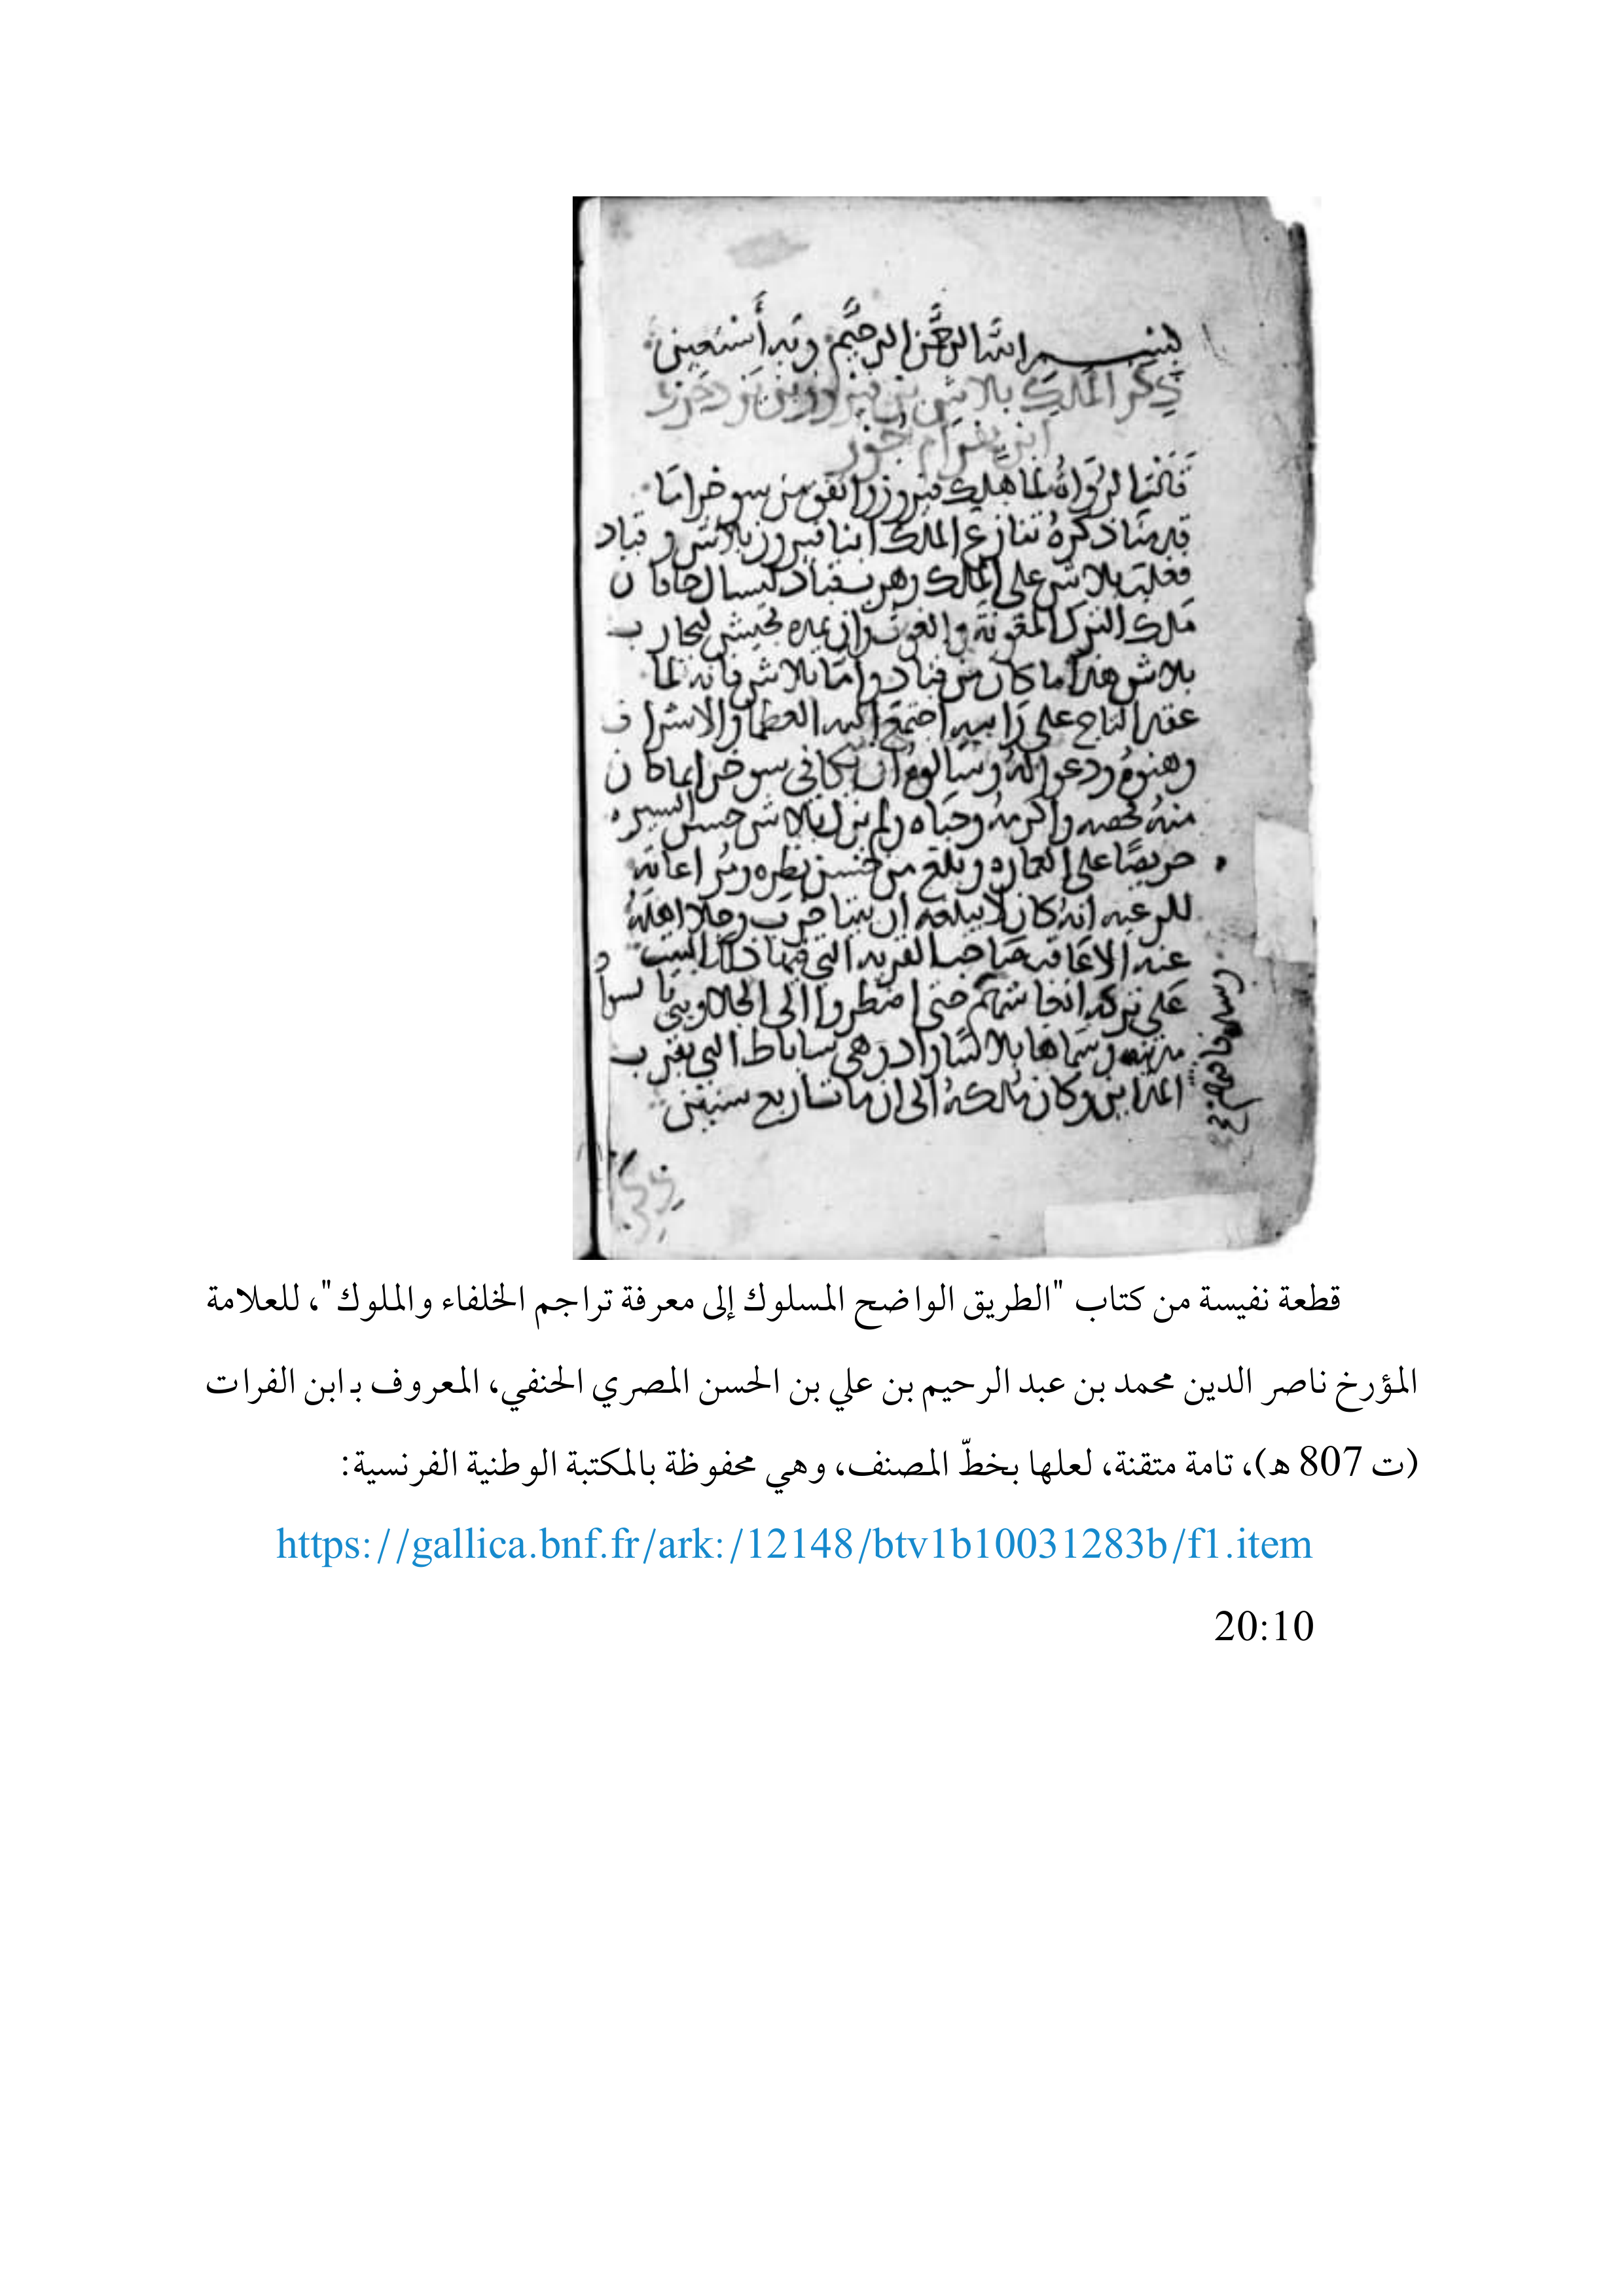 بسم الله الرحمن الرحيم وبه أستعين
ذكر الملك بلاش بن فيروز بن يزدجرد
ابن بهرام جور
قالت الرواة لما هلك فيروز واتفق من سوخرا ما
قدمنا ذكره تنازع الملك ابنا فيروز بلاش وقباد
فغلب بلاش على الملك وهرب قباد ليسال خاقان
ملك الترك المعونة والغوث وان يمده بجيش ليحارب
بلاش هذا ما كان من قباد واما بلاش فانه لما
عقد التاج على راسه اجتمع اليه العظما والاشراف
وهنوه ودعوا له وسالوه ان يكافى سوخرا بما كان
منه فخصه واكرمه وحباه ولم يزل بلاش حسن السيره
حريصا على العماره وبلغ من حسن نظره ومراعاته
للرعيه انه كان لا يبلغه ان بيتا خرب وجلا اهله
عنه الا عاقب صاحب القريه التي فيها ذلك البيت
على تركه انعاشهم حتى اضطروا الى الجلا وبنى
مدينه وسماها بلاشاواد وهي ساباط التي بقرب
المداين وكان ملكه الى ان مات اربع سنين
قطعة نفيسة من كتاب "الطريق الواضح المسلوك إلى معرفة تراجم الخلفاء والملوك"، للعلامة
المؤرخ ناصر الدين محمد بن عبد الرحيم بن علي بن الحسن المصري الحنفي، المعروف بـ ابن الفرات
(ت 807 هـ)، تامة متقنة، لعلها بخطّ المصنف، وهي محفوظة بالمكتبة الوطنية الفرنسية:
https://gallica.bnf.fr/ark:/12148/btv1b10031283b/f1.item
20:10